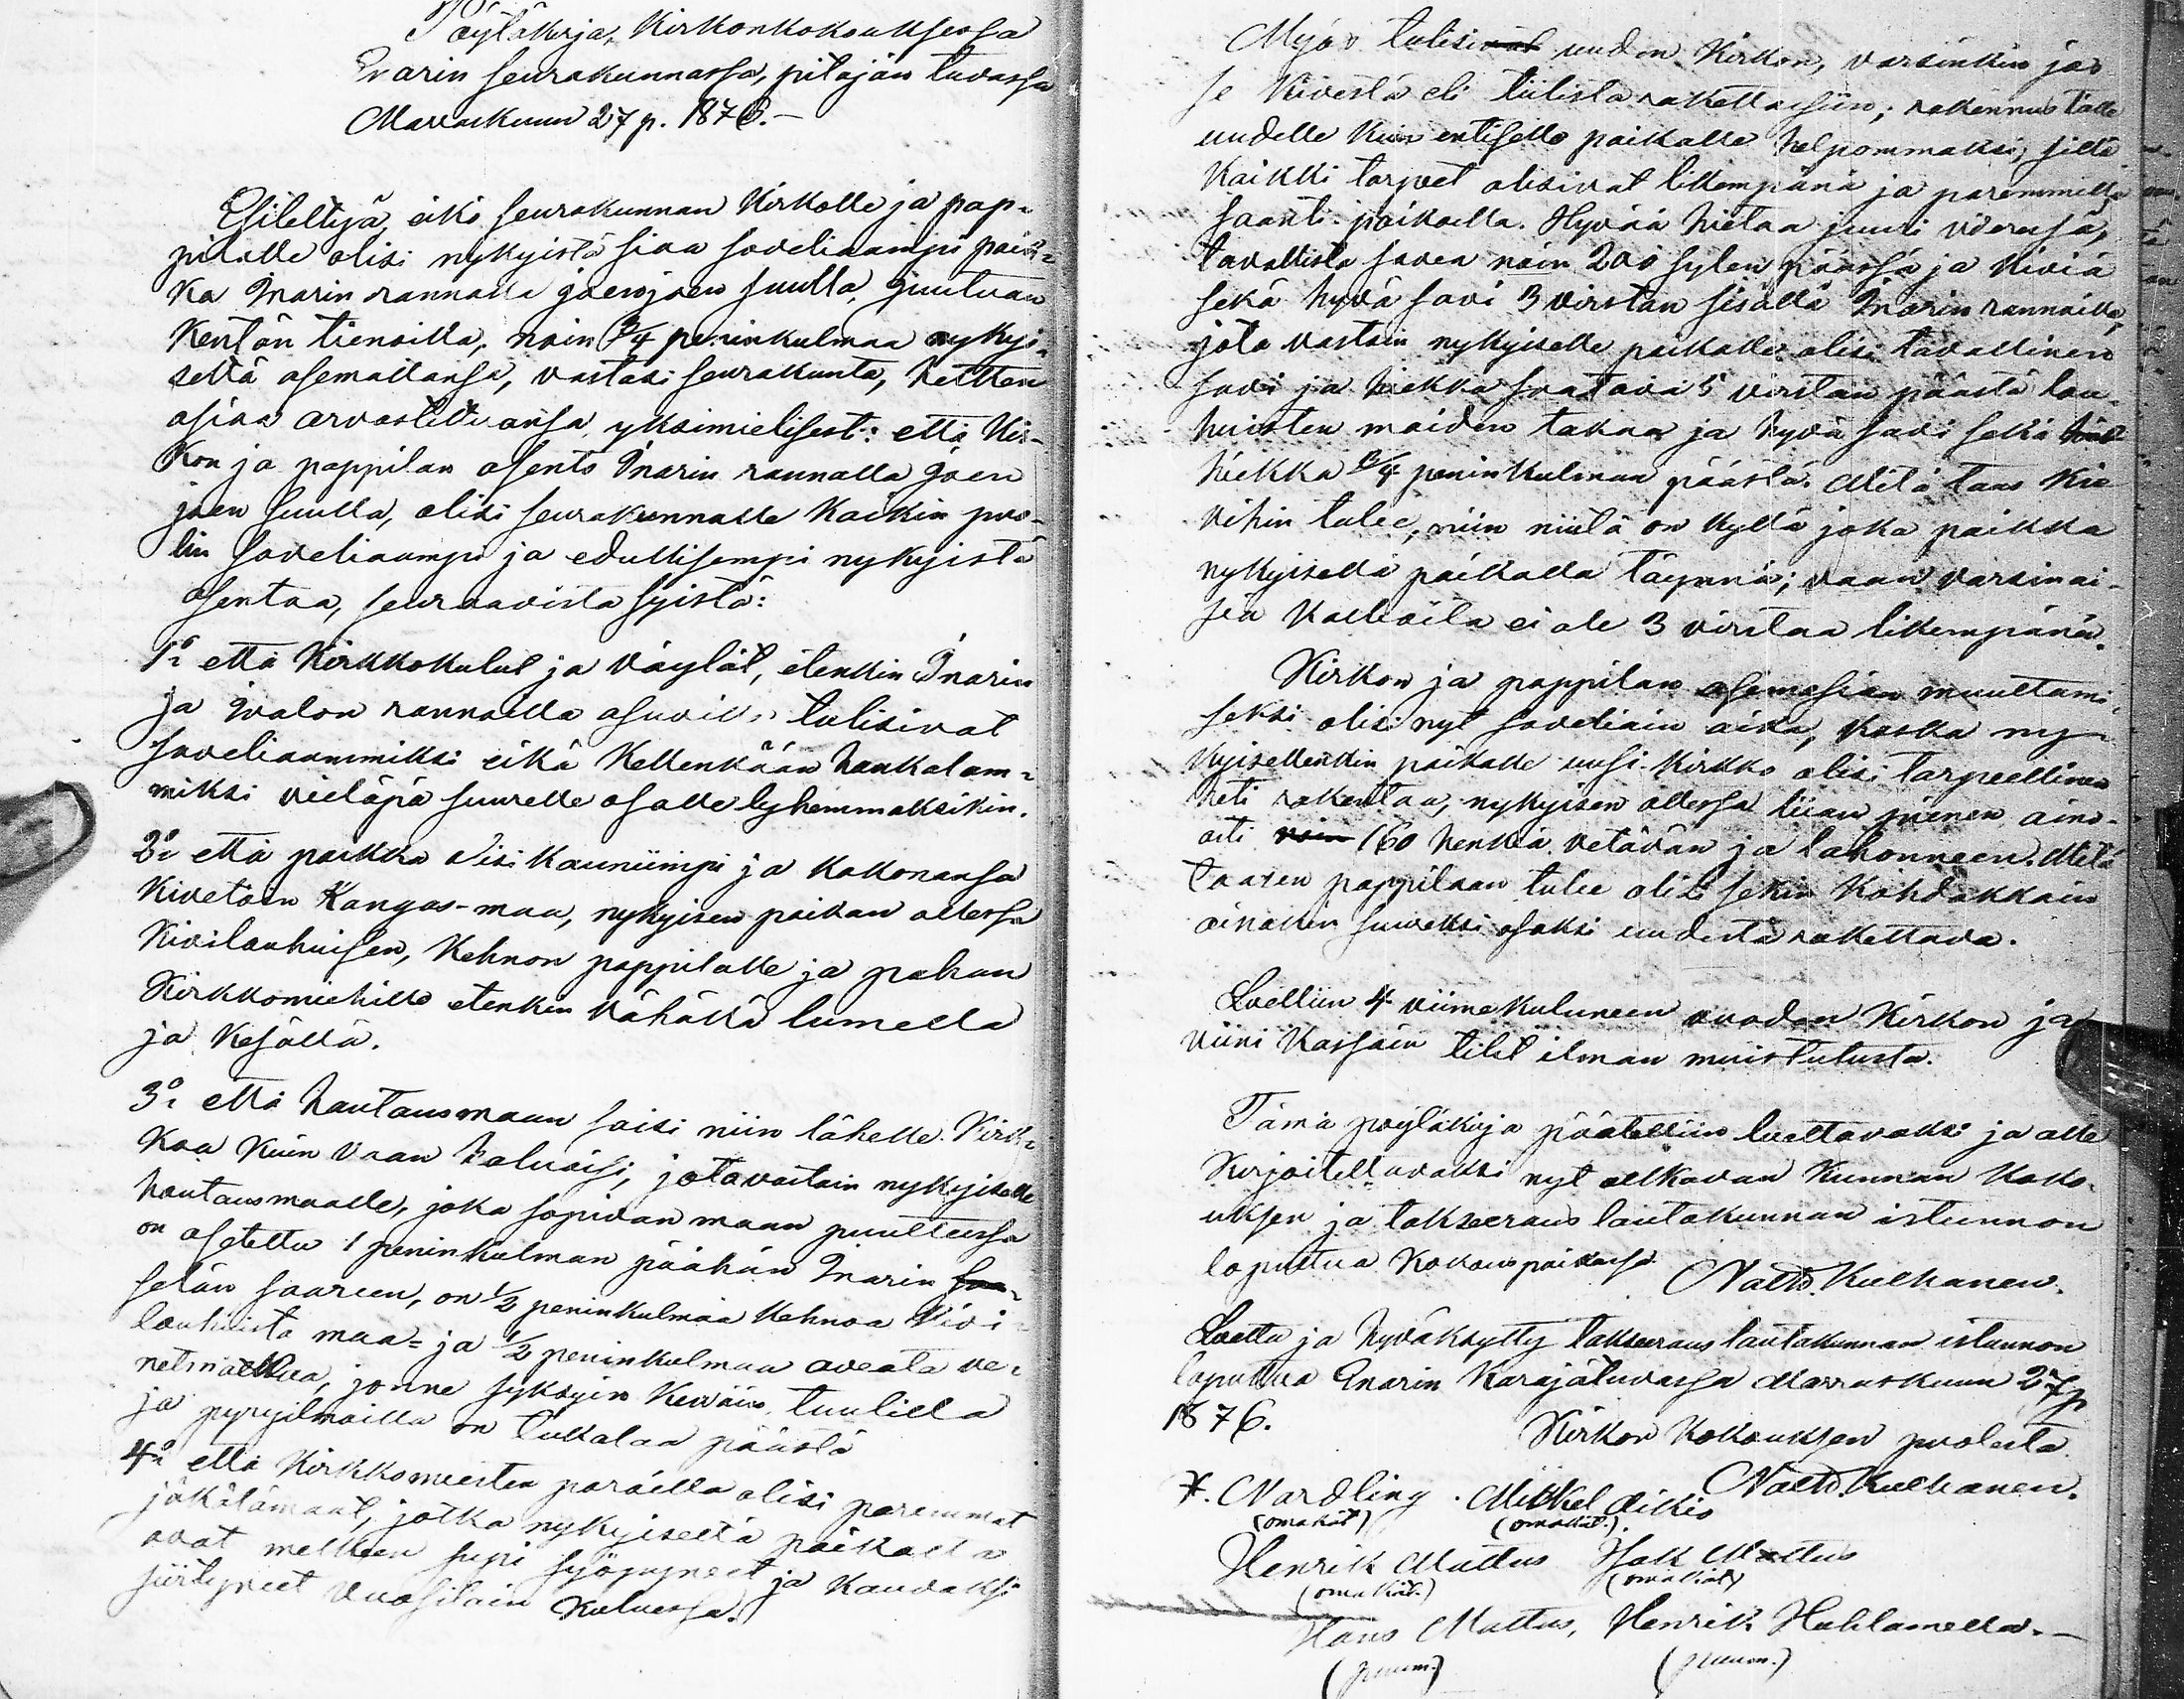 Pöytäkirja, Kirkonkokouksessa
Enarin seurakunnassa, pitäjän tuvassa
Marraskuun 27 p. 1876.—
Esiteltyä, eikö seurakunnan Kirkolle ja pap-
pilalle olisi nykyistä siaa soveliaampi paik-
ka Inarin rannalla Joenjoen suulla, Juutuan
Kentän tienoilla, noin 3/4 peninkulmaa nykyi-
seltä asemaltansa, vastasi seurakunta, hetken
asiaa arvosteltuansa, yksimielisesti: että Kir-
kon ja pappilan asento Inarin rannalla Joen
joen suulla, olisi seurakunnalle kaikin puo-
lin soveliaampi ja edullisempi nykyistä
asentaa, seuraavista syistä:
1º että Kirkkokulut ja väylät, etenkin Inarin
ja Ivalon rannoilla asuville tulisivat
soveliaammiksi eikä kellenkään hankalam-
miksi vieläpä suurelle osalle lyhemmaksikin.
2º että paikka olisi kauniimpi ja kokonansa
kivetöin kangas-maa, nykyisen paikan ollessa
kivilouhuisen, kehnon pappilalle ja pahan
Kirkkomiehille etenkin vähällä lumella
ja kesällä.
3º että hautausmaan saisi niin lähelle Kirk-
koa kuin vaan haluaisi, jotavastoin nykyiselle
hautausmaalle, joka sopivan maan puutteessa
on asetettu 1 peninkulman päähän Inarin
selän saareen, on 1/2 peninkulmaa kehnoa kivi
louhuista maa- ja 1/2 peninkulmaa aveata ve-
netmatkaa, jonne syksyin keväin, tuulilla
ja pyryilmoilla on tukalaa päästä
4º että Kirkkomiesten poroilla olisi paremmat
jäkälämaat, jotka nykyiseltä paikalta
ovat melkeen supi syöpyneet ja kauvaksi
siirtyneet vuosilain kuluessa.
Myös tulisi uuden Kirkon, varsinkin jos
se kivestä eli tiilistä rakettaisiin, rakennus tälle
uudelle kuin entiselle paikalle helpommaksi, sillä
kaikki tarpeet olisivat likempänä ja paremmilla
saanti paikoilla. Hyvää hietaa juuri vieressä,
tavallista savea noin 200 sylen päässä ja kiviä
sekä hyvä savi 3 virstan sisällä Inarin rannoilla,
jota vastoin nykyiselle paikalle olisi tavallinen
savi ja hiekka saatava 5 virstan päästä lou-
huisten maiden takaa ja hyvä savi sekä
hiekka 3/4 peninkulman päästä. Mitä taas ki-
vihin tulee, niin niitä on kyllä joka paikka
nykyisellä paikalla täynnä; vaan varsinai-
sia kallioita ei ole 3 virstaa likempänä.
Kirkon ja pappilan asemasian muuttami-
seksi olisi nyt soveliain aika, koska ny-
kyisellenkin paikalle uusi kirkko olisi tarpeellinen
heti rakentaa, nykyisen ollessa liian pienen aino-
asti 160 henkeä vetävän ja lahonneen. Mitä
taasen pappilaan tulee olisi sekin kohdakkoin
ainakin suureksi osaksi uudesta rakettava.
Luettiin 4 viimekuluneen vuoden Kirkon ja
viini kassain tilit ilman muistutusta.
Tämä pöytäkirja päätettiin luettavaksi ja alle
kirjoitettavaksi nyt alkavan kunnan koko-
uksen ja takseeraus lautakunnan istunnon
loputtua kokouspaikassa
Luettu ja hyväksytty takseeraus lautakunnan istunnon
loputtua Enarin Käräjätuvassa Marraskuun 27 p
1876.
Kirkon Kokouksen puolesta
Nordling. Mikkel Aikio
(omakät) (omakät.)
Henrik Mattus Isak Mattus
(omakät.) (omakät)
Hans Mattus, Henrik
(puum.) (puum.)